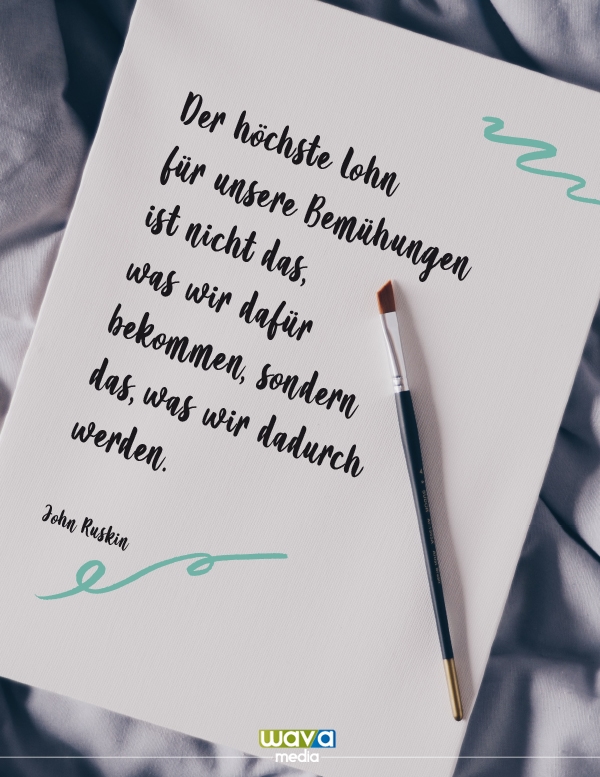 Der höchste Lohn
für unsere Bemühungen
ist nicht das,
was wir dafür
bekommen, sondern
das, was wir dadurch
werden.
John Ruskin
wava
media